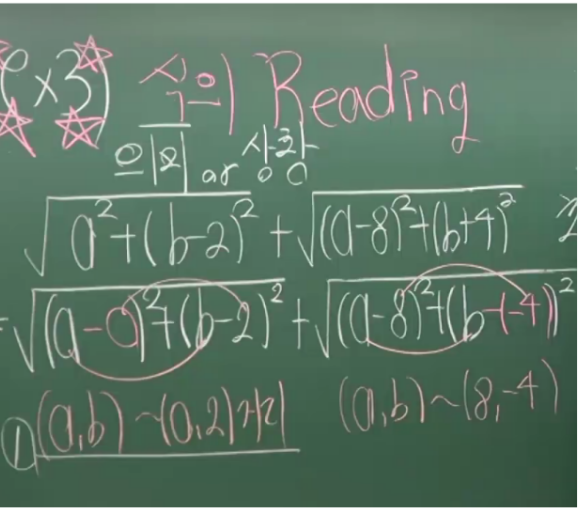 ex3) 식의 Reading
의미 or 상황
√a²+(b-2)² + √(a-8)²+(b+4)²
√(a-0)²+(b-2)² + √(a-8)²+(b-(-4))²
① (a,b) ~ (0,2) 거리 (a,b) ~ (8,-4)